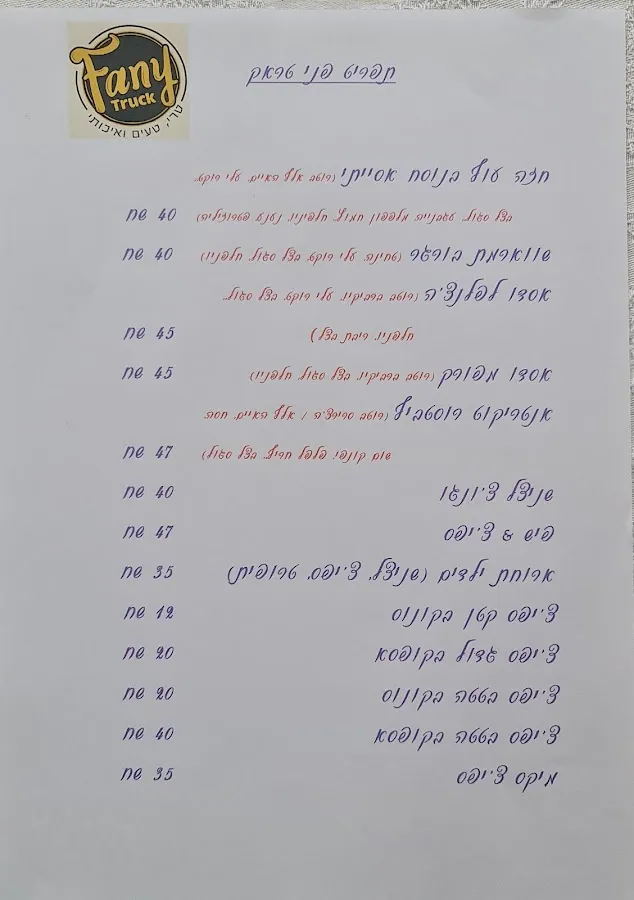 Fany
TRUCK
טרי, טעים ואיכותי
תפריט פני טראק
חזה עוף בנוסח אסייתי (רוטב אלף האיים, עלי רוקט,
בצל סגול, עגבנייה, מלפפון חמוץ, חלפיניו, נענע, פטרוזיליה) 40 שח
שווארמת בורגר (טחינה, עלי רוקט, בצל סגול, חלפניו) 40 שח
אסדו לפלנצ'ה (רוטב ברביקיו, עלי רוקט, בצל סגול,
חלפניו, ריבת בצל) 45 שח
אסדו מפורק (רוטב ברביקיו, בצל סגול, חלפניו) 45 שח
אנטריקוט רוסטביף (רוטב סרירצ'ה / אלף האיים, חסה,
שום קונפי, פלפל חריף, בצל סגול) 47 שח
שניצל צ'ונגו 40 שח
פיש & צ'יפס 47 שח
ארוחת ילדים (שניצל, צ'יפס, טרופית) 35 שח
צ'יפס קטן בקונוס 12 שח
צ'יפס גדול בקופסא 20 שח
צ'יפס בטטה בקונוס 20 שח
צ'יפס בטטה בקופסא 40 שח
מיקס צ'יפס 35 שח